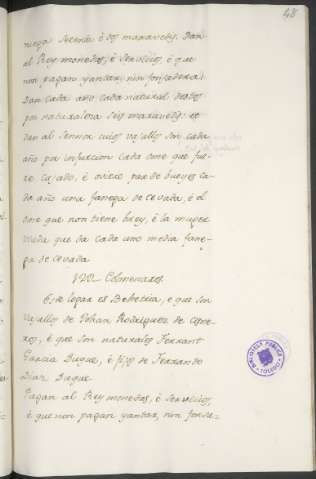 48
niega setenta è dos maravedis. Dan
al Rey monedas, è servicios, è que
non pagan yantar, nin fonsadera:
Dan cada año cada natural destos
por naturaleza seis maravedis: et
dan al Sennor cuios vasallos son cada
año por infurcion cada ome que fue-
re casado, è oviere par de bueyes ca-
da año una fanega de cevada, è el
ome que non tiene buey, è la muger
viuda que dà cada uno media fane-
ga de cevada
Colmenares
Este logar es Behetria, e que son
vasallos de Johan Rodriguez de
è que son naturales Ferrant
Garcia Duque, è fijos de Ferrando
Diaz Duque
Pagan al Rey monedas, è servicios,
è que non pagan yantar, nin fonsa-
BIBLIOTECA PUBLICA
TOLEDO